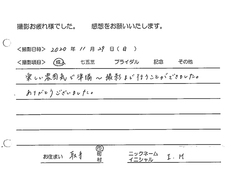 撮影お疲れ様でした。　感想をお願いいたします。
＜撮影日時＞ 2020 年 11 月 29 日（日）
＜撮影項目＞ 七五三 ブライダル 記念 その他
楽しい雰囲気で準備〜撮影まで行うことができました。
ありがとうございました。
お住まい 市 町 村 ニックネーム
イニシャル I.M